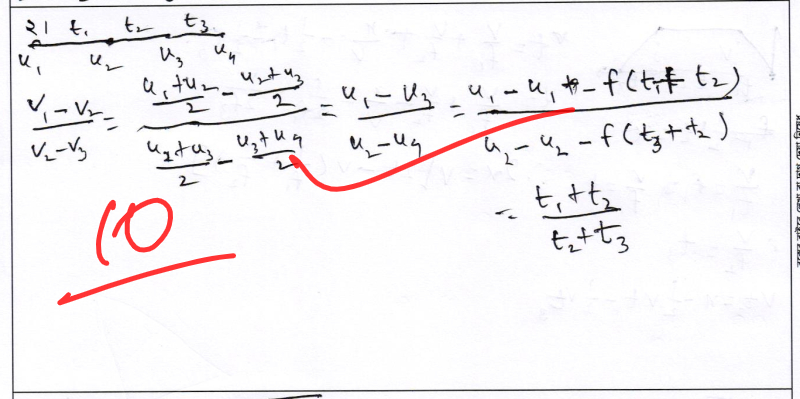 21 t₁ t₂ t₃
u₁ u₂ u₃ u₄
(v₁-v₂)/(v₂-v₃) = ((u₁+u₂)/2 - (u₂+u₃)/2)/((u₂+u₃)/2 - (u₃+u₄)/2) = (u₁-u₃)/(u₂-u₄) = (u₁-u₁-f(t₁+t₂))/(u₂-u₂-f(t₃+t₂))
= (t₁+t₂)/(t₂+t₃)
10